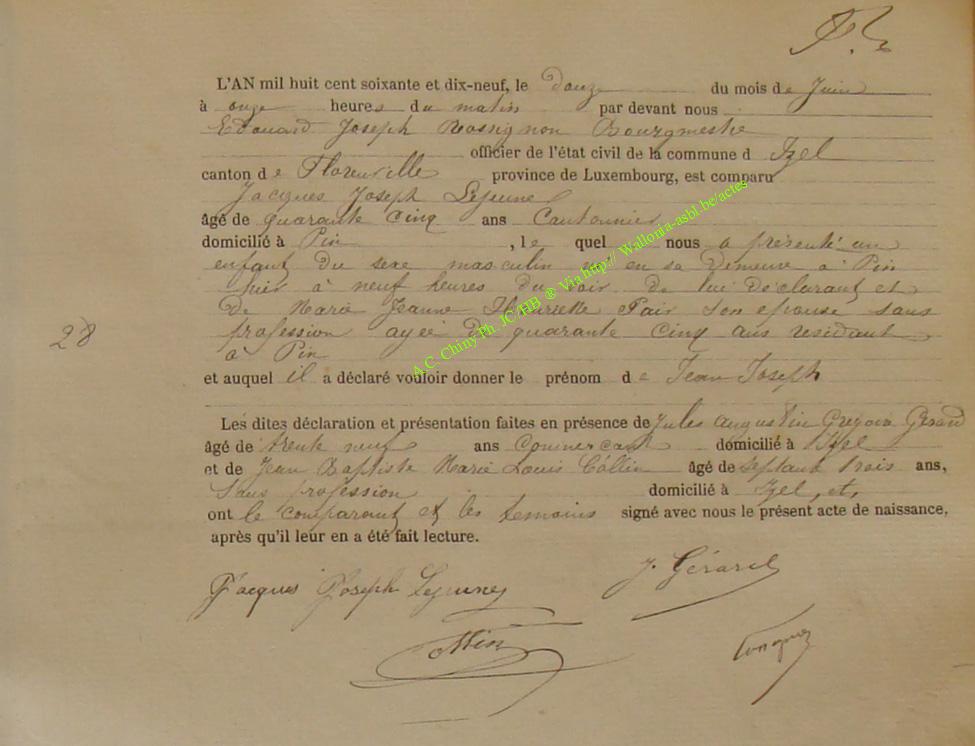 L'AN mil huit cent soixante et dix-neuf, le Douze du mois de Juin
à onze heures du matin par devant nous
Edouard Joseph Rossignon Bourgmestre
officier de l'état civil de la commune d Izel
canton de Florenville province de Luxembourg, est comparu
Jacques Joseph Lejeune
âgé de quarante cinq ans Cantonnier
domicilié à Pin , le quel nous a présenté un
enfant du sexe masculin né en sa demeure à Pin
hier à neuf heures du soir de lui déclarant et
de Marie Jeanne Henriette son épouse sans
profession agée de quarante cinq ans résidant
à Pin
et auquel il a déclaré vouloir donner le prénom de Jean Joseph
28
Les dites déclaration et présentation faites en présence de Jules Augustin Grégoire Gérard
âgé de trente neuf ans Commercant domicilié à Izel
et de Jean Baptiste Marie Louis Collin âgé de septante trois ans,
sans profession domicilié à Izel, et,
ont le comparant et les témoins signé avec nous le présent acte de naissance,
après qu'il leur en a été fait lecture.
Jacques Joseph Lejeune J. Gérard
Collin
A.C. Chiny Ph. JC/HB ® Via http:// Wallonia-asbl.be/actes